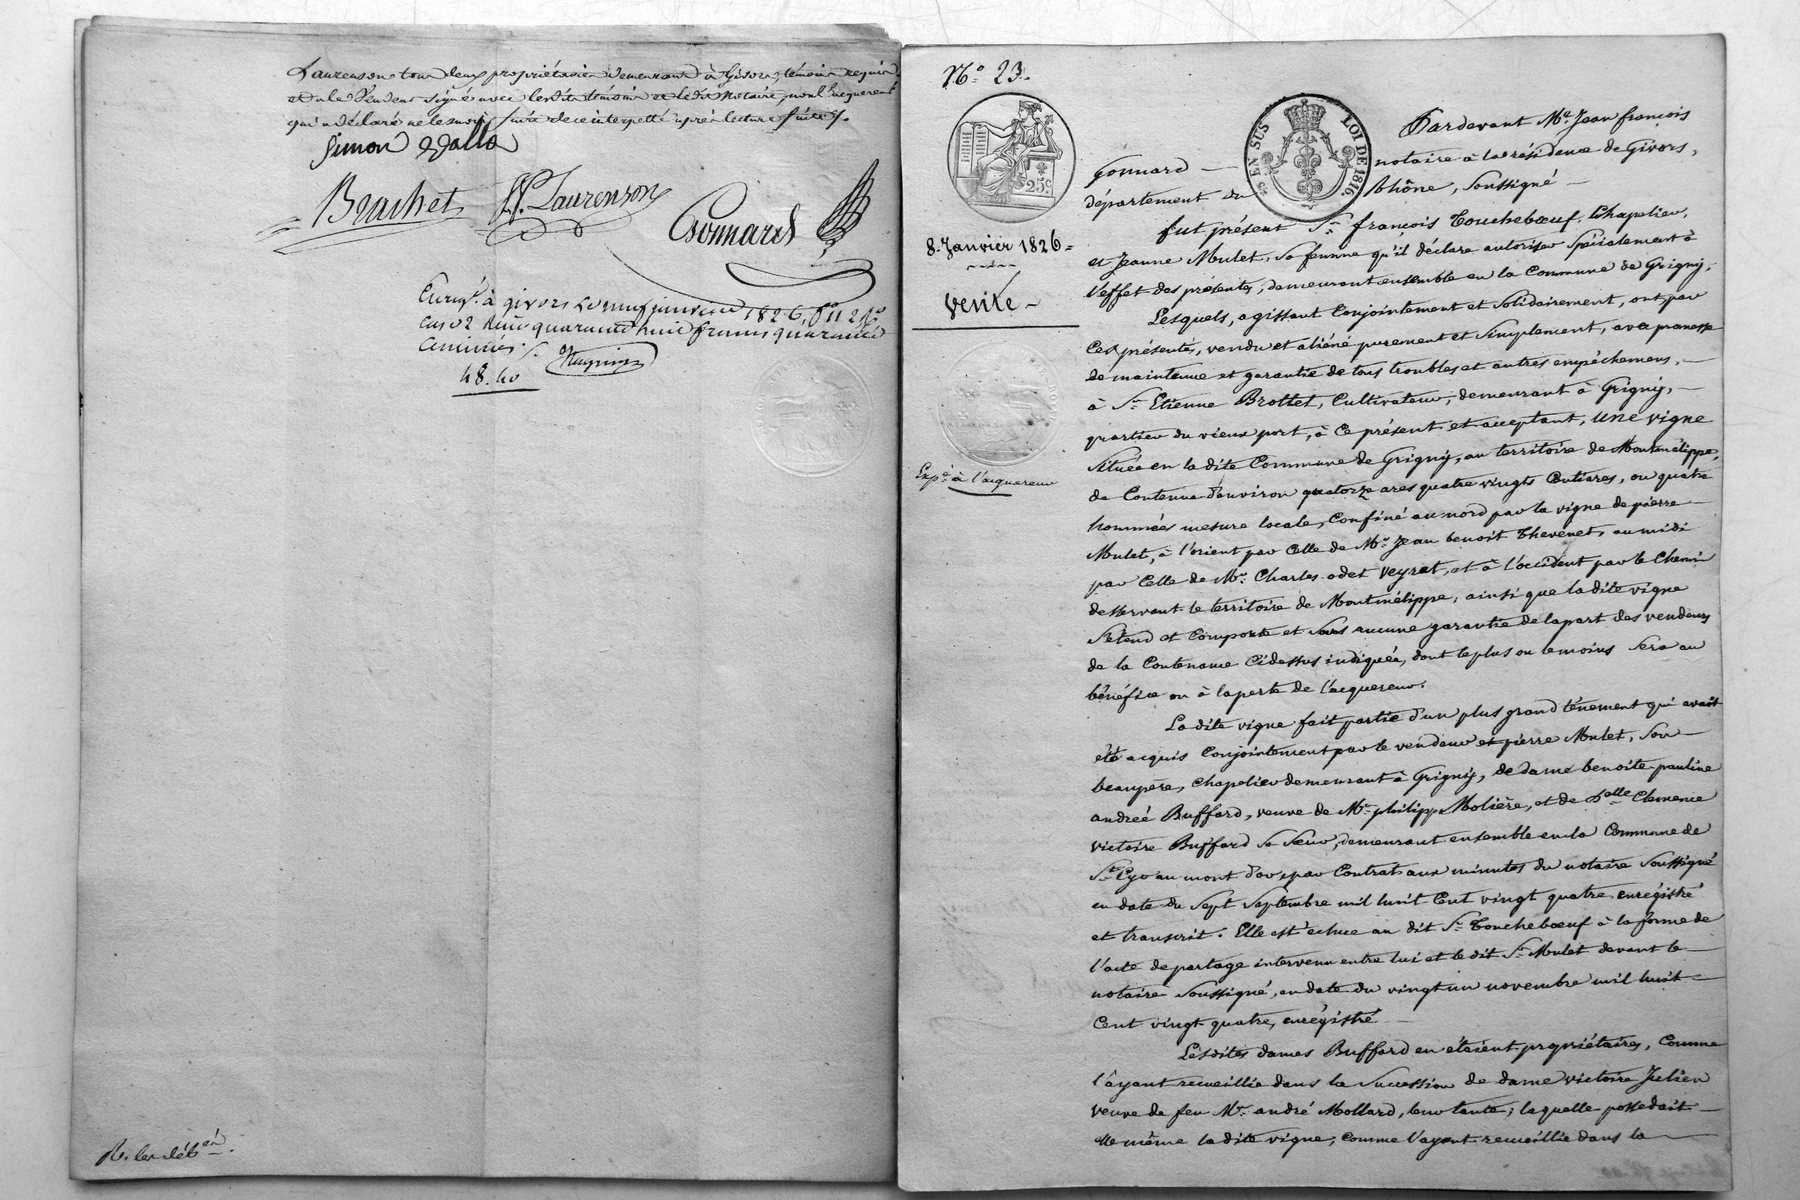 Laurenson tous deux propriétaires demeurant à Givors, témoins requis
et a le Vendeur signé avec lesdits témoins et ledit Notaire, non l'acquereur
qui a déclaré ne le savoir faire de ce interpellé après lecture faite.
Simon Dalla
Brachet Laurenson
Gonnard
Enreg. à givors le neuf janvier 1826, f° 112 R°
case 2 Reçu quarante huit francs quarante
centimes.
48.40
N° 23.
25 c.
5 c. EN SUS
LOI DE 1816.
8 Janvier 1826
Vente
Exp. à l'acquereur
Pardevant Me Jean françois
Gonnard notaire à la résidence de Givors,
département du Rhône, soussigné
fut présent Sr. françois Toucheboeuf, Chapelier,
et Jeanne Mulet, sa femme qu'il déclare autoriser spécialement à
l'effet des présentes, demeurant ensemble en la Commune de Grigny,
Lesquels, agissant Conjointement et solidairement, ont par
Ces présentes, vendu et aliéné purement et simplement, avec promesse
de maintenue et garantie de tous troubles et autres empêchemens,
à Sr. Etienne Brottet, Cultivateur, demeurant à Grigny,
quartier du vieux port, à ce présent et acceptant, une vigne
située en la dite Commune de Grigny, au territoire de Montmélippe,
de Contenue d'environ quatorze ares quatre vingts Centiares, ou quatre
hommées mesure locale, Confiné au nord par la vigne de pierre
Mulet, à l'orient par Celle de Mr. Jean benoit Thevenet, au midi
par Celle de Mr. Charles odet Veyrat, et à l'occident par le Chemin
desservant le territoire de Montmélippe, ainsi que la dite vigne
s'étend et Comporte et sans aucune garantie de la part des vendeurs
de la Contenance Cidessus indiquée, dont le plus ou le moins sera au
bénéfice ou à la perte de l'acquereur.
La dite vigne fait partie d'un plus grand ténement qui avait
été acquis Conjointement par le vendeur et pierre Mulet, son
beaupère, chapelier demeurant à Grigny, de dame benoite pauline
andreé Buffard, veuve de Mr. philippe Molière, et de Delle Clemence
victoire Buffard sa soeur, demeurant ensemble en la Commune de
St. Cyr au mont d'or, par Contrat aux minutes du notaire soussigné
en date du sept septembre mil huit Cent vingt quatre, enregistré
et transcrit. Elle est échue au dit Sr. Toucheboeuf à la forme de
l'acte de partage intervenu entre lui et le dit Sr. Mulet devant le
notaire soussigné, en date du vingt un novembre mil huit
Cent vingt quatre, enrégistré
Lesdites dames Buffard en étaient propriétaires, Comme
l'ayant recueillie dans la succession de dame victoire Julien
veuve de feu Mr. andré Mollard, leur tante, laquelle possedait
elle même la dite vigne, comme l'ayant recueillie dans la